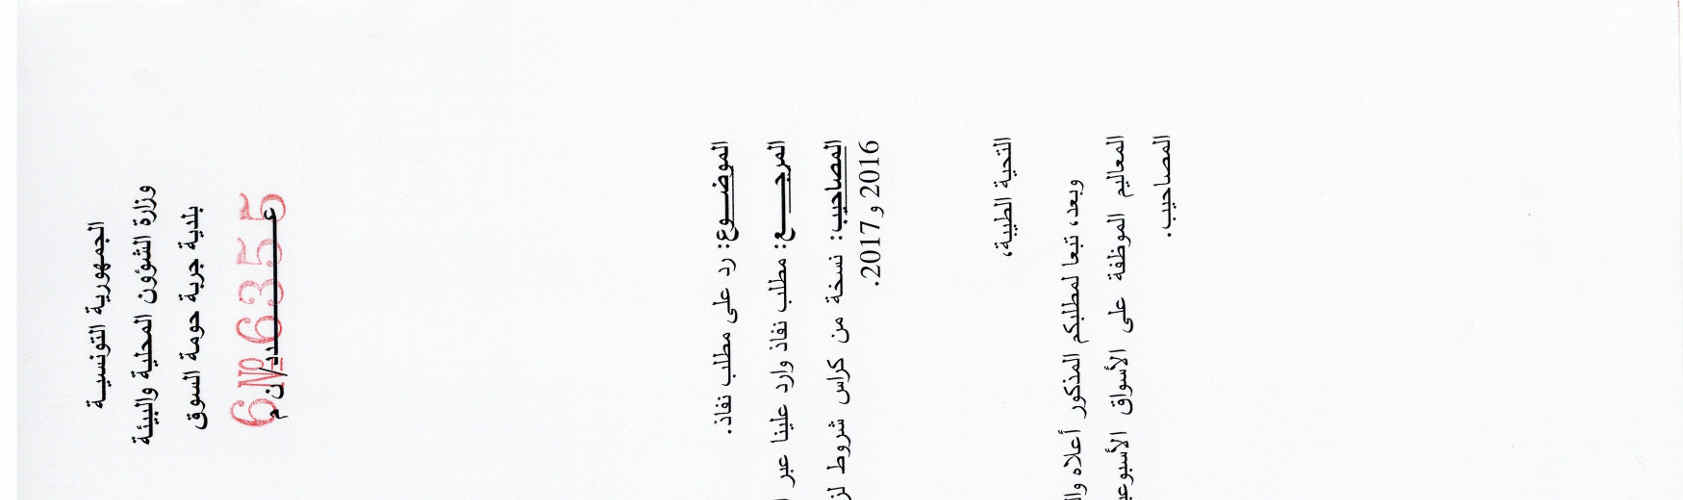 الجمهورية التونسية
وزارة الشؤون المحلية والبيئة
بلدية جربة حومة السوق
6 № 6355
عـــدد/ن م
الموضـوع: رد على مطلب نفاذ.
المرجـــع: مطلب نفاذ وارد علينا عبر
المصاحيب: نسخة من كراس شروط
2016 و2017.
التحية الطيبة،
وبعد، تبعا لمطلبكم المذكور أعلاه
المعاليم الموظفة على الأسواق
المصاحيب.